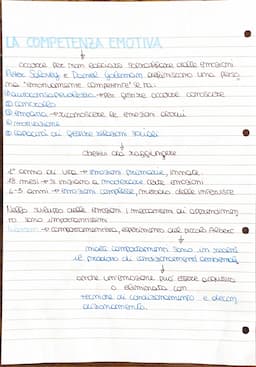 LA COMPETENZA EMOTIVA
occorre per non essere sopraffatte dalle emozioni
Peter Salovey e Daniel Goleman definiscono una perso
na "emotivamente competente" se ha:
① autoconsapevolezza → per gestire occorre conoscere
② controllo
③ empatia → riconoscere le emozioni altrui
④ motivazione
⑤ capacità di gestire relazioni sociali
obiettivi da raggiungere
1° anno di vita → emozioni primarie, innate.
18 mesi → si impara a mascherare certe emozioni
4-5 anni → emozioni complesse,
Nello sviluppo delle emozioni i meccanismi di apprendimen
to sono importantissimi
→ comportamentista, esperimento del piccolo Albert
molti comportamenti sono in realtà
il prodotto di condizionamenti ambientali
anche un'emozione può essere acquisita
o eliminata con
tecniche di condizionamento e decon
dizionamento.